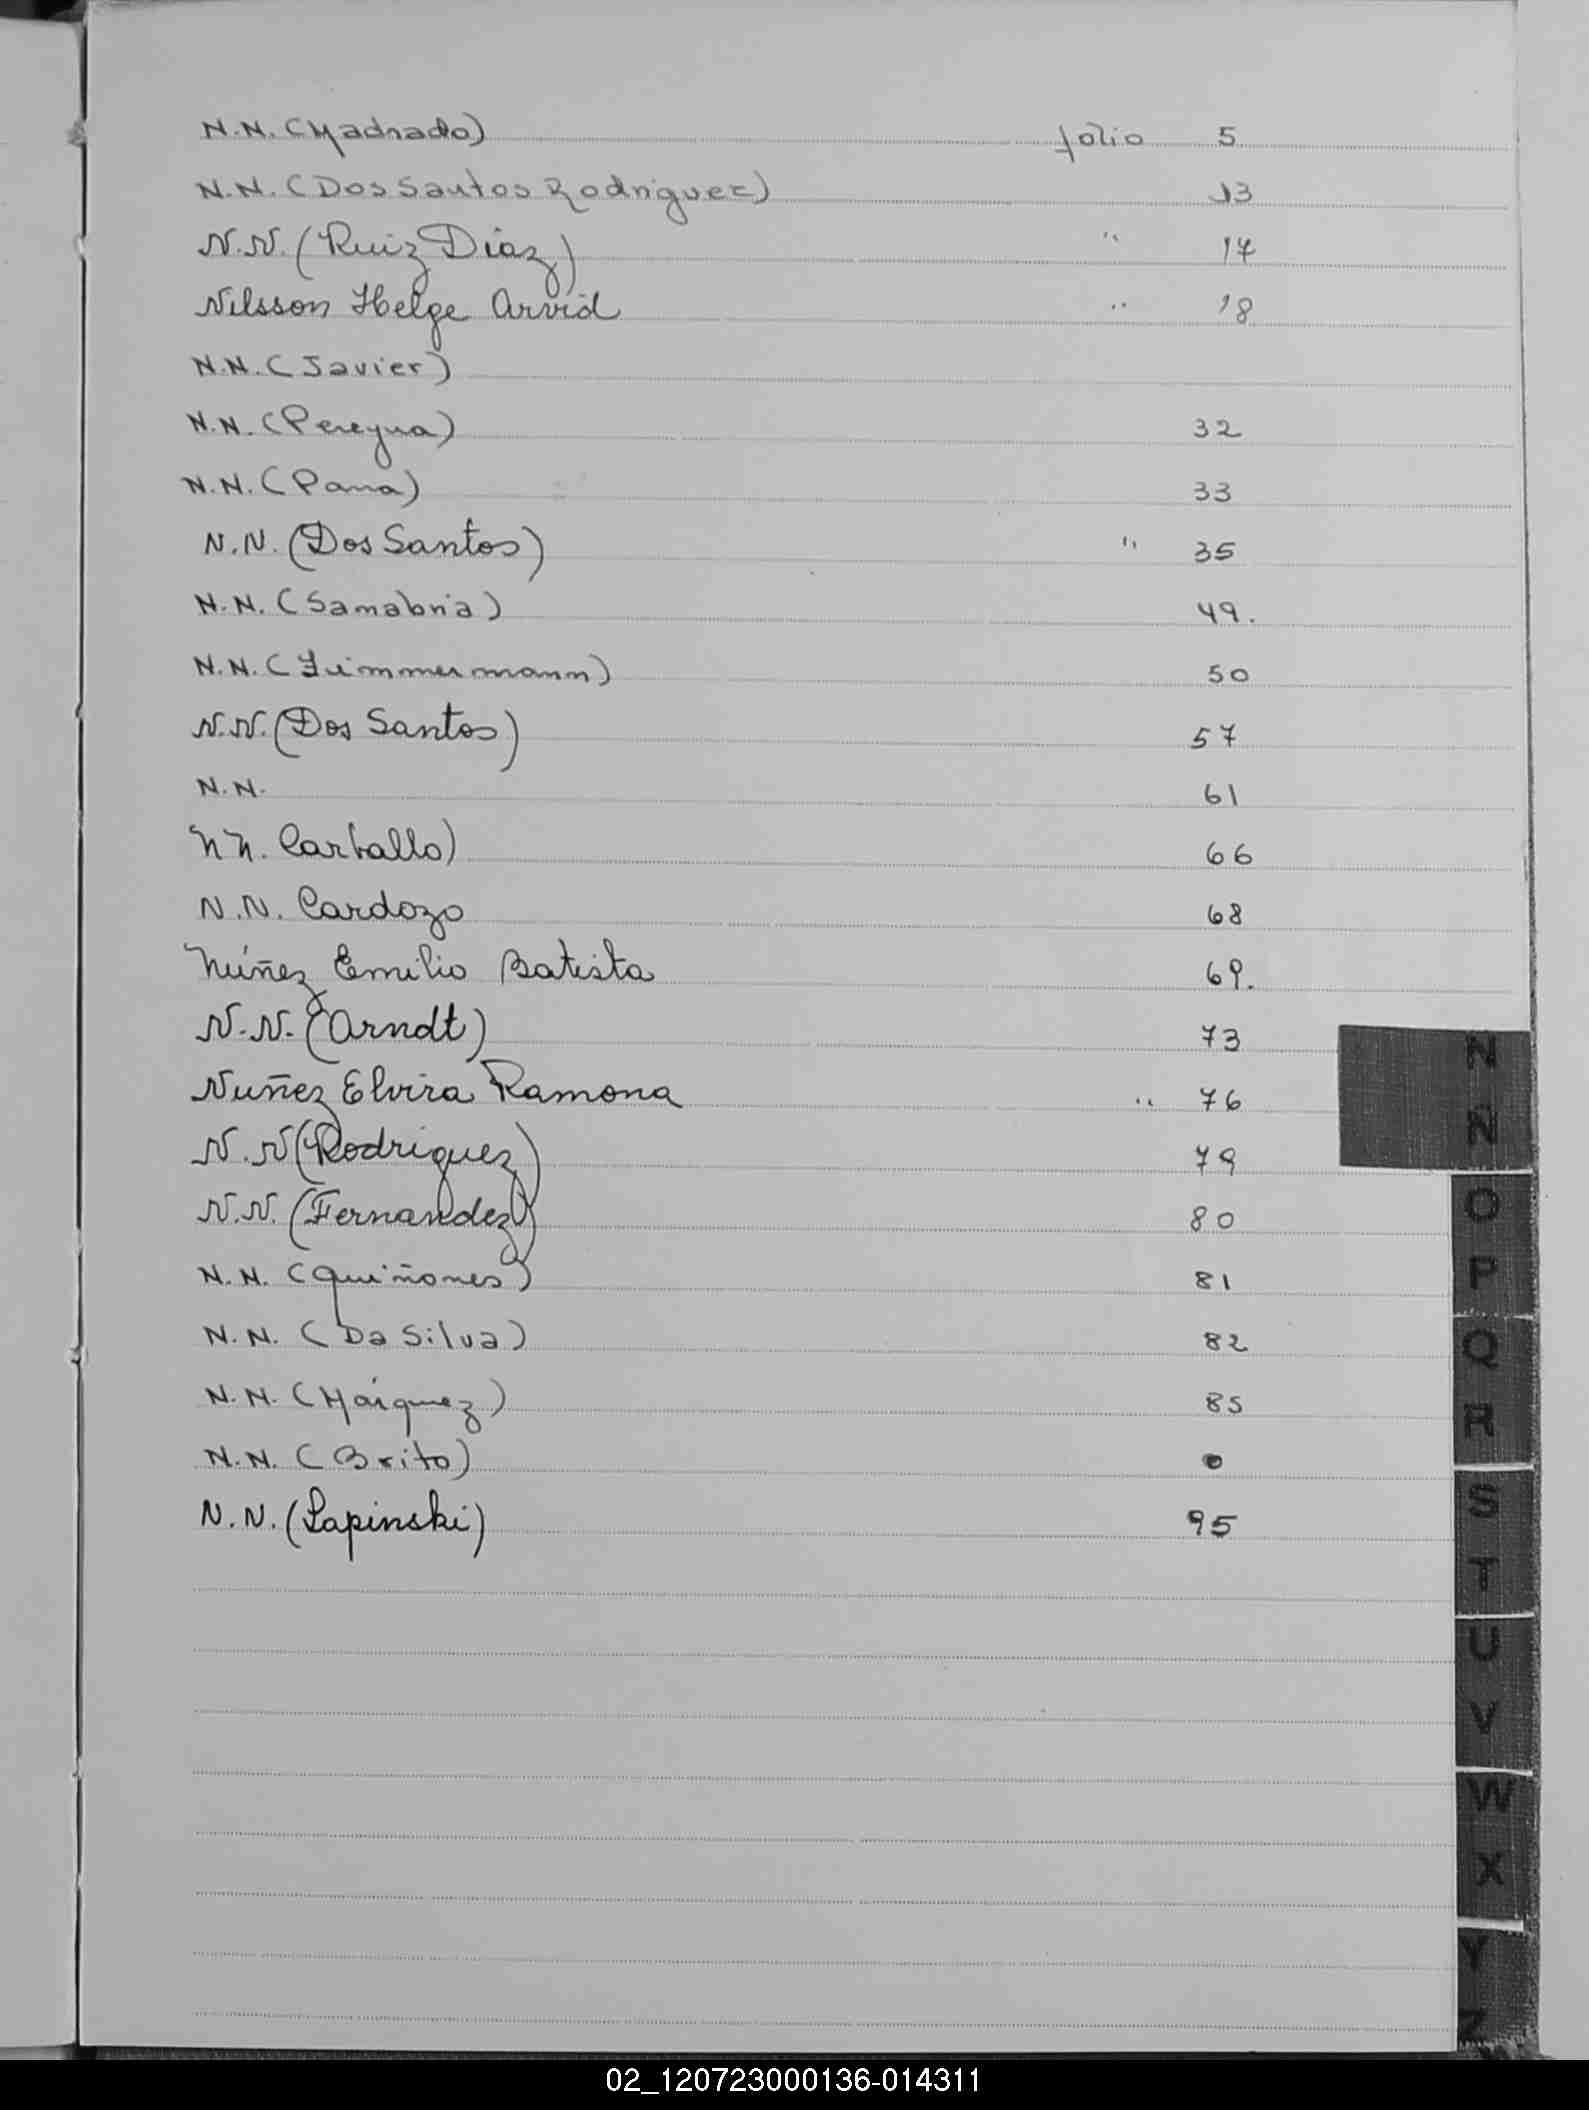 N.N. (Madrado) folio 5
N.N. (Dos Santos Rodriguez) 13
N.N. (Ruiz Díaz) " 17
Nilsson Helge Arvid " 18
N.N. (Javier)
N.N. (Pereyra) 32
N.N. (Parra) 33
N.N. (Dos Santos) " 35
N.N. (Sanabria) 49.
N.N. (Zimmermann) 50
N.N. (Dos Santos) 57
N.N. 61
NN. Carballo) 66
N.N. Cardozo 68
Núñez Emilio Batista 69.
N.N. (Arndt) 73
Nuñez Elvira Ramona " 76
N.N (Rodriguez) 79
N.N. (Fernandez) 80
N.N. (Quiñones) 81
N.N. (Da Silva) 82
N.N. (Márquez) 85
N.N. (Brito)
N.N. (Lapinski) 95
N
Ñ
O
P
Q
R
S
T
U
V
W
X
Y
Z
02_120723000136-014311